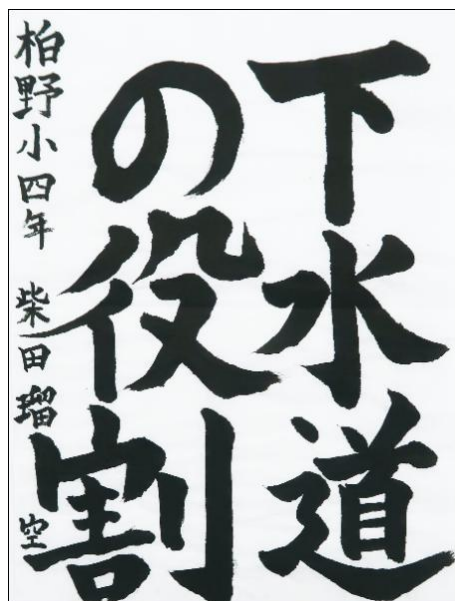 下水道
の役割
柏野小四年 柴田瑠空